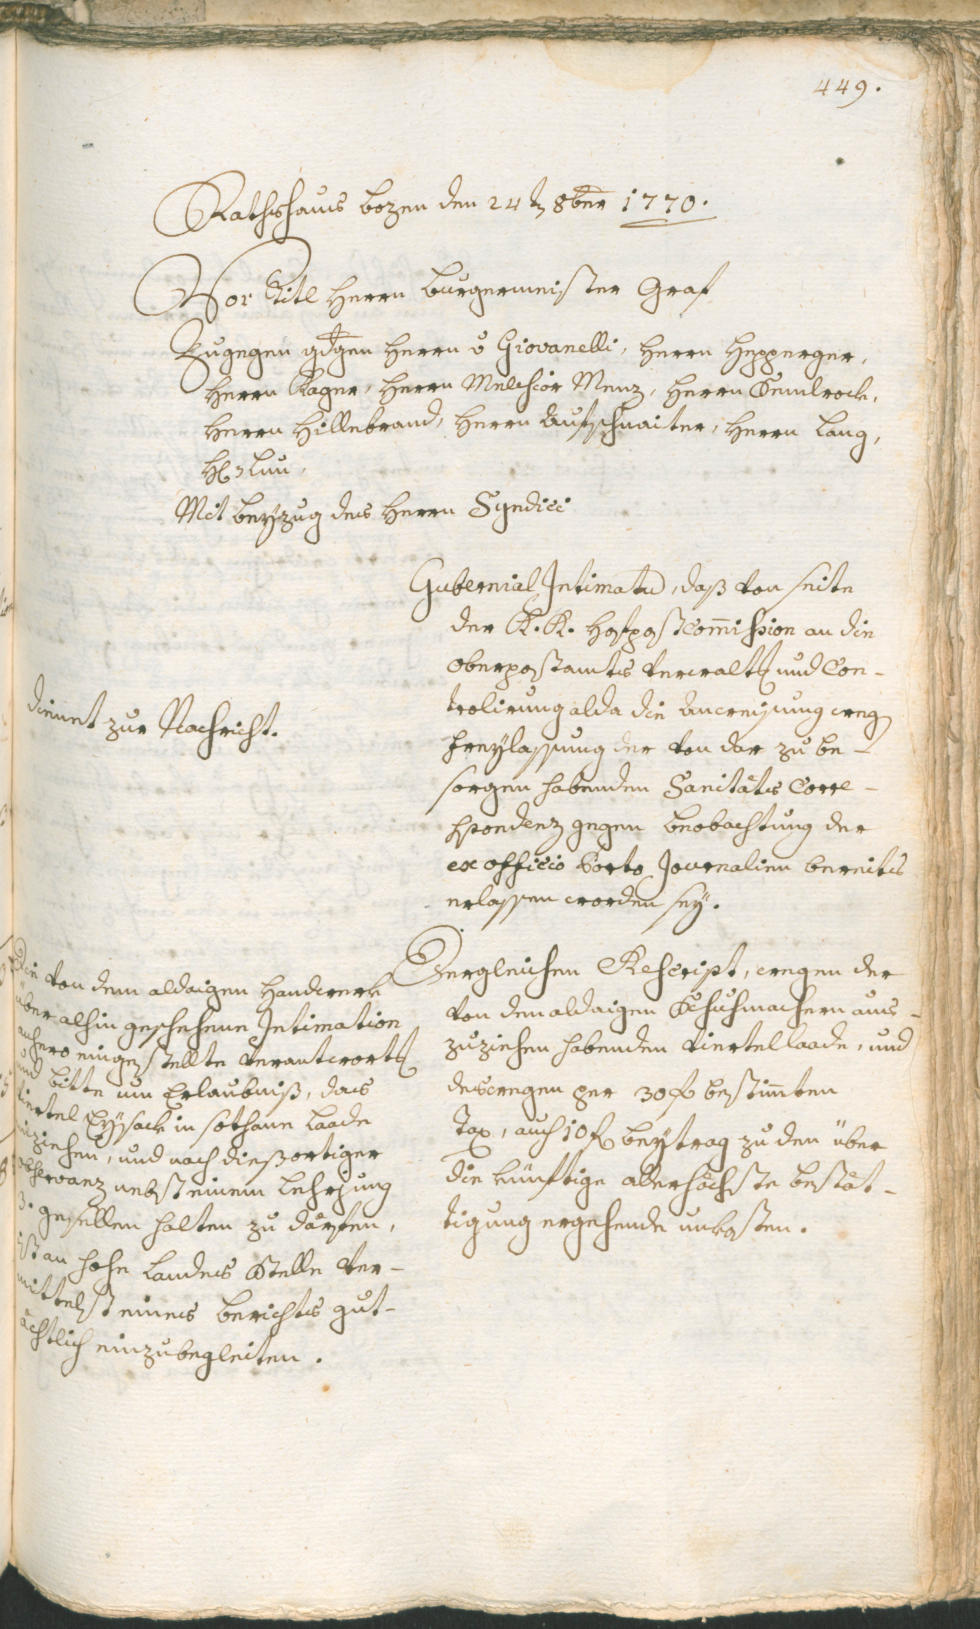 449.
Rathshaus bozen den 24 t. 8ber 1770.
Vor Titl Herrn burgermeister Graf
Zugegen gdgen Herrn v Giovanelli, Herrn Hepperger,
Herrn Kager, Herrn Melchior Menz, Herrn Semlrock,
Herrn Hillebrand, Herrn Aufschnaiter, Herrn Lang,
Mit beyzug des Herrn Syndici
Gubernial Intimatu, daß von seite
der K. K. hofpostcom̄ission an die
oberpostamts verwalt. und Con-
trolirung alda die Anweisung weg.
freylassung der von dar zu be-
sorgen habenden Sanitäts Corre-
spondenz gegen beobachtung der
ex officio Porto Journalien bereits
erlassen worden seÿ.
dienet zur Nachricht.
Dergleichen Rescript, wegen der
von den aldaigen Schuhmachern aus-
zuziehen habenden viertellaade, und
deswegen per 30 f bestim̄ten
Tax, auch 10 f beytrag zu den über
die künftige allerhöchste bestät-
tigung ergehende unkosten.
Die von dem aldaigen Handwerk
über alhin geschehene Intimation
anhero eingestellte verantwort.
und bitte um Erlaubniß, das
viertel Eysack in sothane Laade
ziehen, und nach dießortiger
observanz nebst einem Lehrjung
3. gesellen halten zu därfen,
ist an hohe Landes Stelle ver-
mittelst eines berichts gut-
ächtlich einzubegleiten.